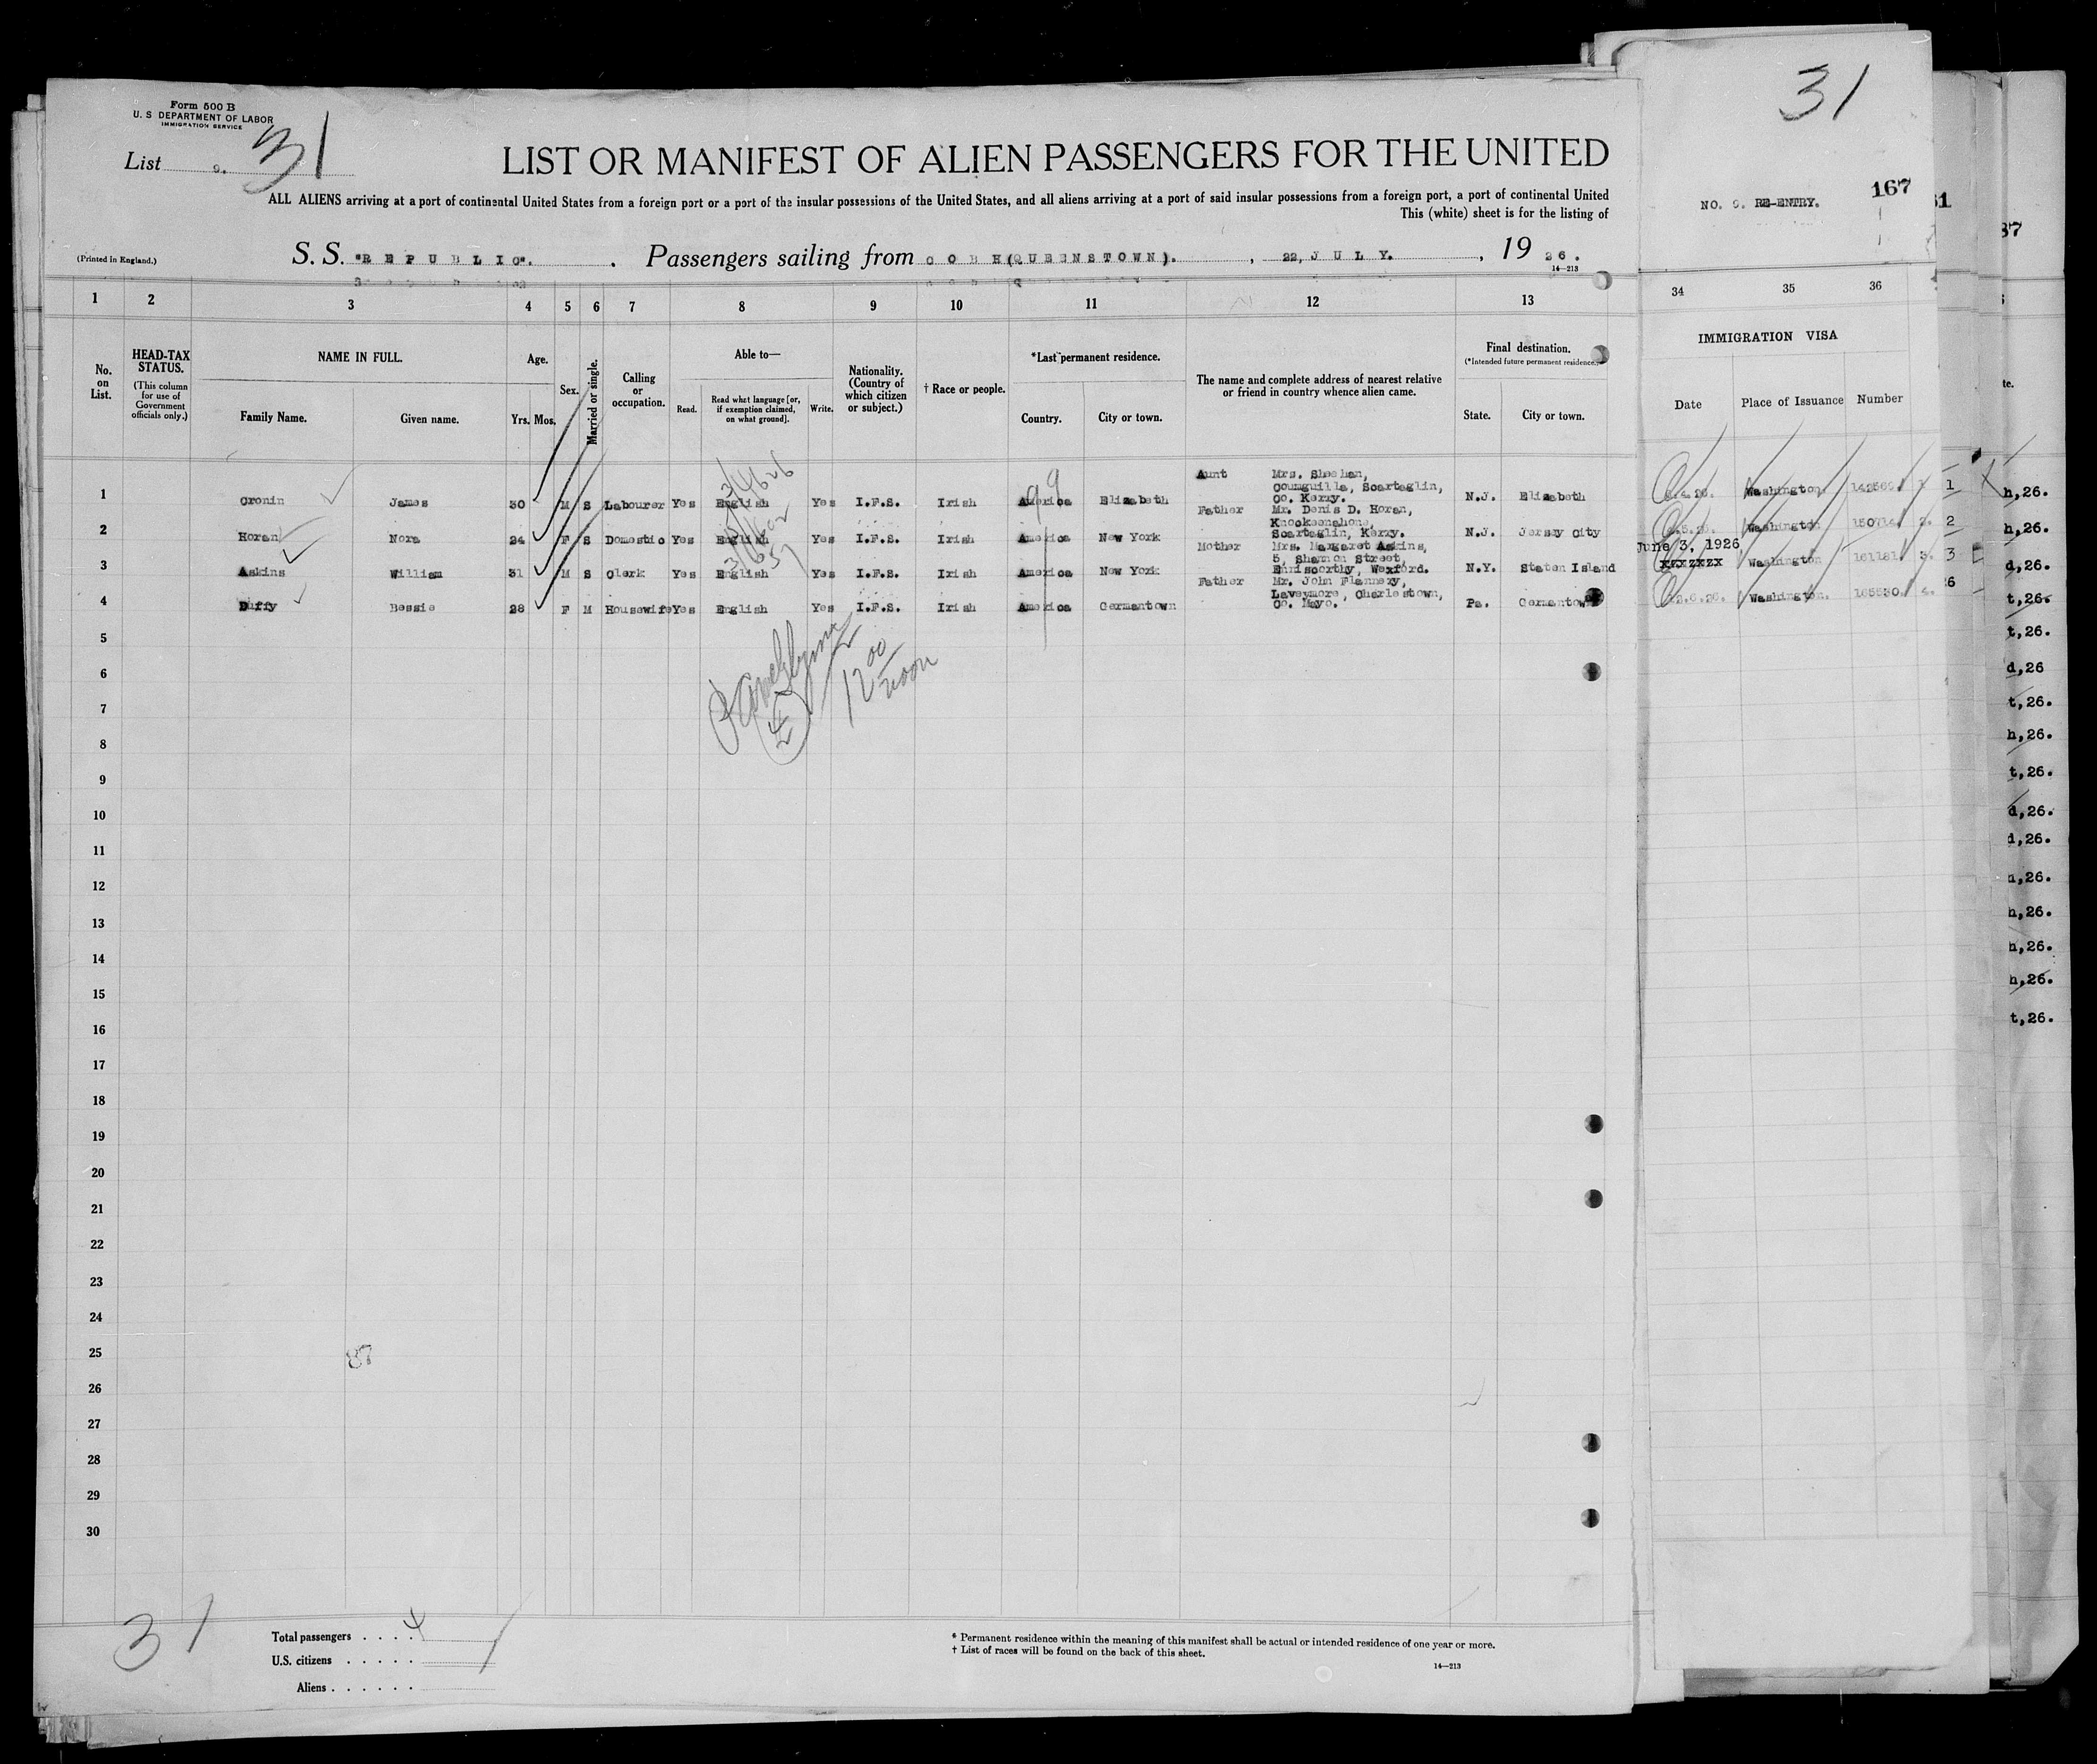 Form 500 B
U. S DEPARTMENT OF LABOR
IMMIGRATION SERVICE
List 9. 31
LIST OR MANIFEST OF ALIEN PASSENGERS FOR THE UNITED
ALL ALIENS arriving at a port of continental United States from a foreign port or a port of the insular possessions of the United States, and all aliens arriving at a port of said insular possessions from a foreign port, a port of continental United
This (white) sheet is for the listing of
(Printed in England.)
S. S. "REPUBLIC". Passengers sailing from COBH(QUEENSTOWN). , 22, JULY. , 1926.
14—213
1 2 3 4 5 6 7 8 9 10 11 12 13
No. on List.
HEAD-TAX STATUS.
(This column for use of Government officials only.)
NAME IN FULL.
Family Name. Given name.
Age.
Yrs. Mos.
Sex.
Married or single.
Calling or occupation.
Able to—
Read. Read what language [or, if exemption claimed, on what ground]. Write.
Nationality. (Country of which citizen or subject.)
† Race or people.
*Last permanent residence.
Country. City or town.
The name and complete address of nearest relative or friend in country whence alien came.
Final destination.
(*Intended future permanent residence.)
State. City or town.
1 Cronin James 30 M S Labourer Yes English Yes I.F.S. Irish America Elizabeth Aunt Mrs. Sheehan, Coumguilla, Scartaglin, Co. Kerry. N.J. Elizabeth
2 Horan Nora 24 F S Domestic Yes English Yes I.F.S. Irish America New York Father Mr. Denis D. Horan, Knockeenahone, Scartaglin, Kerry. N.J. Jersey City
3 Askins William 31 M S Clerk Yes English Yes I.F.S. Irish America New York Mother Mrs. Margaret Askins, 5, Shannon Street Enniscorthy, Wexford. N.Y. Staten Island
4 Duffy Bessie 28 F M Housewife Yes English Yes I.F.S. Irish America Germantown Father Mr. John Flannery, Laveymore, Charlestown, Co. Mayo. Pa. Germantown
12 00 noon
5
6
7
8
9
10
11
12
13
14
15
16
17
18
19
20
21
22
23
24
25
26
27
28
29
30
31
Total passengers . . . . 4
U.S. citizens . . . . .
Aliens . . . . . .
* Permanent residence within the meaning of this manifest shall be actual or intended residence of one year or more.
† List of races will be found on the back of this sheet.
14—213
31
NO. 9. RE-ENTRY.
167
34 35 36
IMMIGRATION VISA
Date Place of Issuance Number
Washington 1
Washington 150714. 2. 2
June 3, 1926
XXXZXZX Washington 161181 3. 3
Washington. 165530. 4.
31
37
te.
h,26.
h,26.
d,26.
t,26.
t,26.
d,26
t,26.
h,26.
t,26.
d,26.
d,26.
h,26.
h,26.
h,26.
t,26.